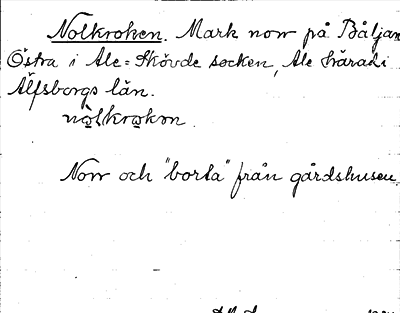 Nolkroken. Mark norr på Båljan
Östra i Ale=Skövde socken, Ale härad i
Älfsborgs län.
nòlkrokon.
Norr och "borta" från gårdshusen.